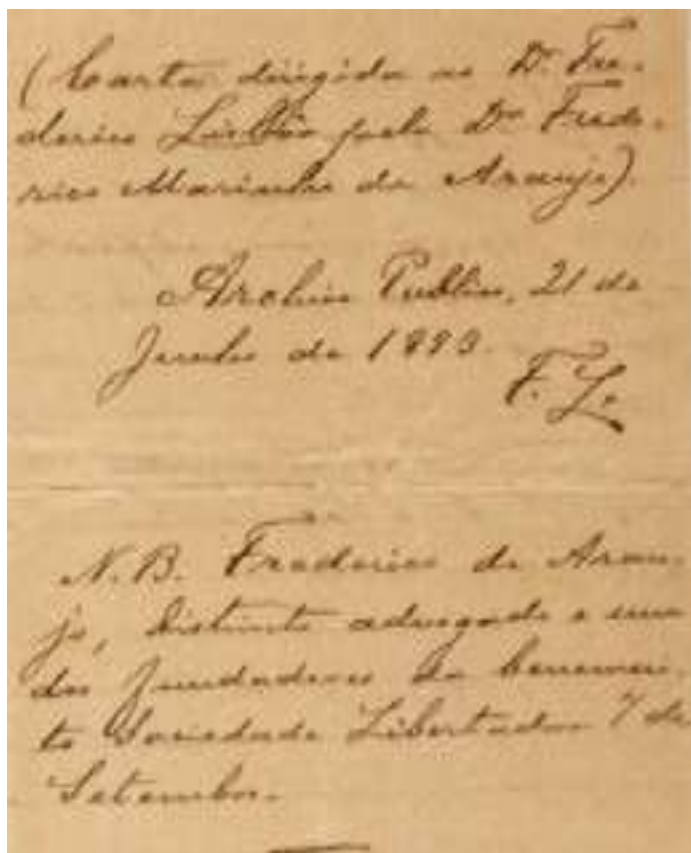 (Carta dirigida ao Dr. Fre-
derico Lisbôa pelo Dr. Frede-
rico Marinho de Araujo).
Archivo Publico, 21 de
Junho de 1893.
F. L.
N.B. Frederico de Arau-
jo, distincto advogado e um
dos fundadores da benemeri-
ta Sociedade Libertadora 7 de
Setembro.